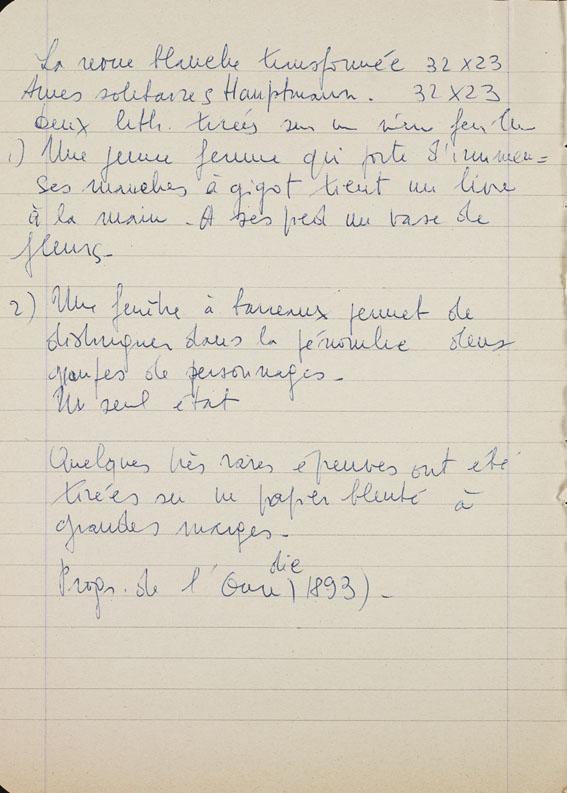 La revue blanche transformée 32 x 23
Ames solitaires Hauptmann. 32 x 23
Deux lith. tirées sur un même feuille
1) Une jeune femme qui porte d'immen=
ses manches à gigot tient un livre
à la main. A ses pied un vase de
fleurs.
2) Une fenêtre à barreaux permet de
distinguer dans la pénombre deux
groupes de personnages.
Un seul état
Quelques très rares épreuves ont été
tirées sur un papier bleuté à
grandes marges.
die
Progr. de l' (1893).